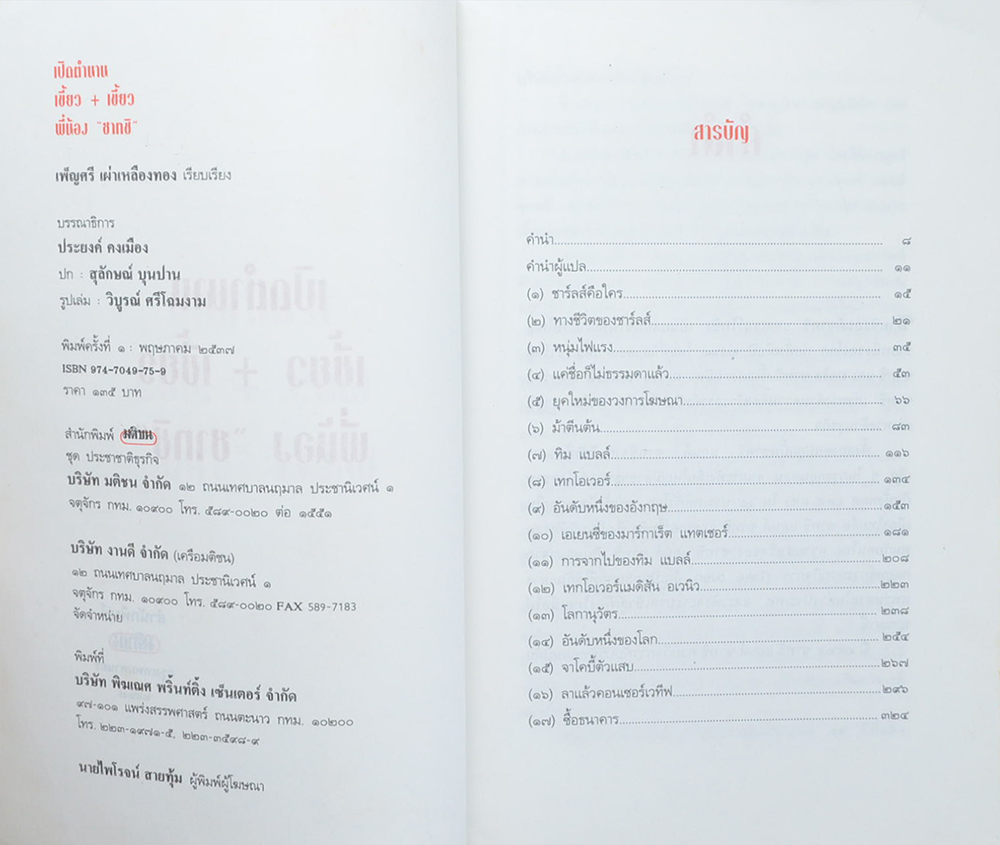 เปิดตำนาน
เขี้ยว + เขี้ยว
พี่น้อง "ซาทชิ"
เพ็ญศรี เผ่าเหลืองทอง เรียบเรียง
บรรณาธิการ
ประยงค์ คงเมือง
ปก : สุลักษณ์ บุนปาน
รูปเล่ม : วิบูรณ์ ศรีโฉมงาม
พิมพ์ครั้งที่ ๑ : พฤษภาคม ๒๕๓๗
ISBN 974-7049-75-9
ราคา ๑๓๕ บาท
สำนักพิมพ์ มติชน
ชุด ประชาชาติธุรกิจ
บริษัท มติชน จำกัด ๑๒ ถนนเทศบาลนฤมาล ประชานิเวศน์ ๑
จตุจักร กทม. ๑๐๙๐๐ โทร. ๕๘๙-๐๐๒๐ ต่อ ๑๕๕๑
บริษัท งานดี จำกัด (เครือมติชน)
๑๒ ถนนเทศบาลนฤมาล ประชานิเวศน์ ๑
จตุจักร กทม. ๑๐๙๐๐ โทร. ๕๘๙-๐๐๒๐ FAX 589-7183
จัดจำหน่าย
พิมพ์ที่
บริษัท พิฆเณศ พริ้นท์ติ้ง เซ็นเตอร์ จำกัด
๙๗-๑๐๑ แพร่งสรรพศาสตร์ ถนนตะนาว กทม. ๑๐๒๐๐
โทร. ๒๒๓-๑๙๗๑-๕, ๒๒๓-๓๕๙๘-๙
นายไพโรจน์ สายทุ้ม ผู้พิมพ์ผู้โฆษณา
สารบัญ
คำนำ ๘
คำนำผู้แปล ๑๑
(๑) ชาร์ลส์คือใคร ๑๕
(๒) ทางชีวิตของชาร์ลส์ ๒๑
(๓) หนุ่มไฟแรง ๓๕
(๔) แค่ชื่อก็ไม่ธรรมดาแล้ว ๕๓
(๕) ยุคใหม่ของวงการโฆษณา ๖๖
(๖) ม้าตีนต้น ๘๓
(๗) ทิม แบลล์ ๑๑๖
(๘) เทกโอเวอร์ ๑๓๔
(๙) อันดับหนึ่งของอังกฤษ ๑๕๓
(๑๐) เอเยนซี่ของมาร์กาเร็ต แทตเชอร์ ๑๘๑
(๑๑) การจากไปของทิม แบลล์ ๒๐๘
(๑๒) เทกโอเวอร์แมดิสัน อเวนิว ๒๒๓
(๑๓) โลกานุวัตร ๒๓๘
(๑๔) อันดับหนึ่งของโลก ๒๕๔
(๑๕) จาโคบี้ตัวแสบ ๒๖๗
(๑๖) ลาแล้วคอนเซอร์เวทีฟ ๒๙๖
(๑๗) ซื้อธนาคาร ๓๒๔